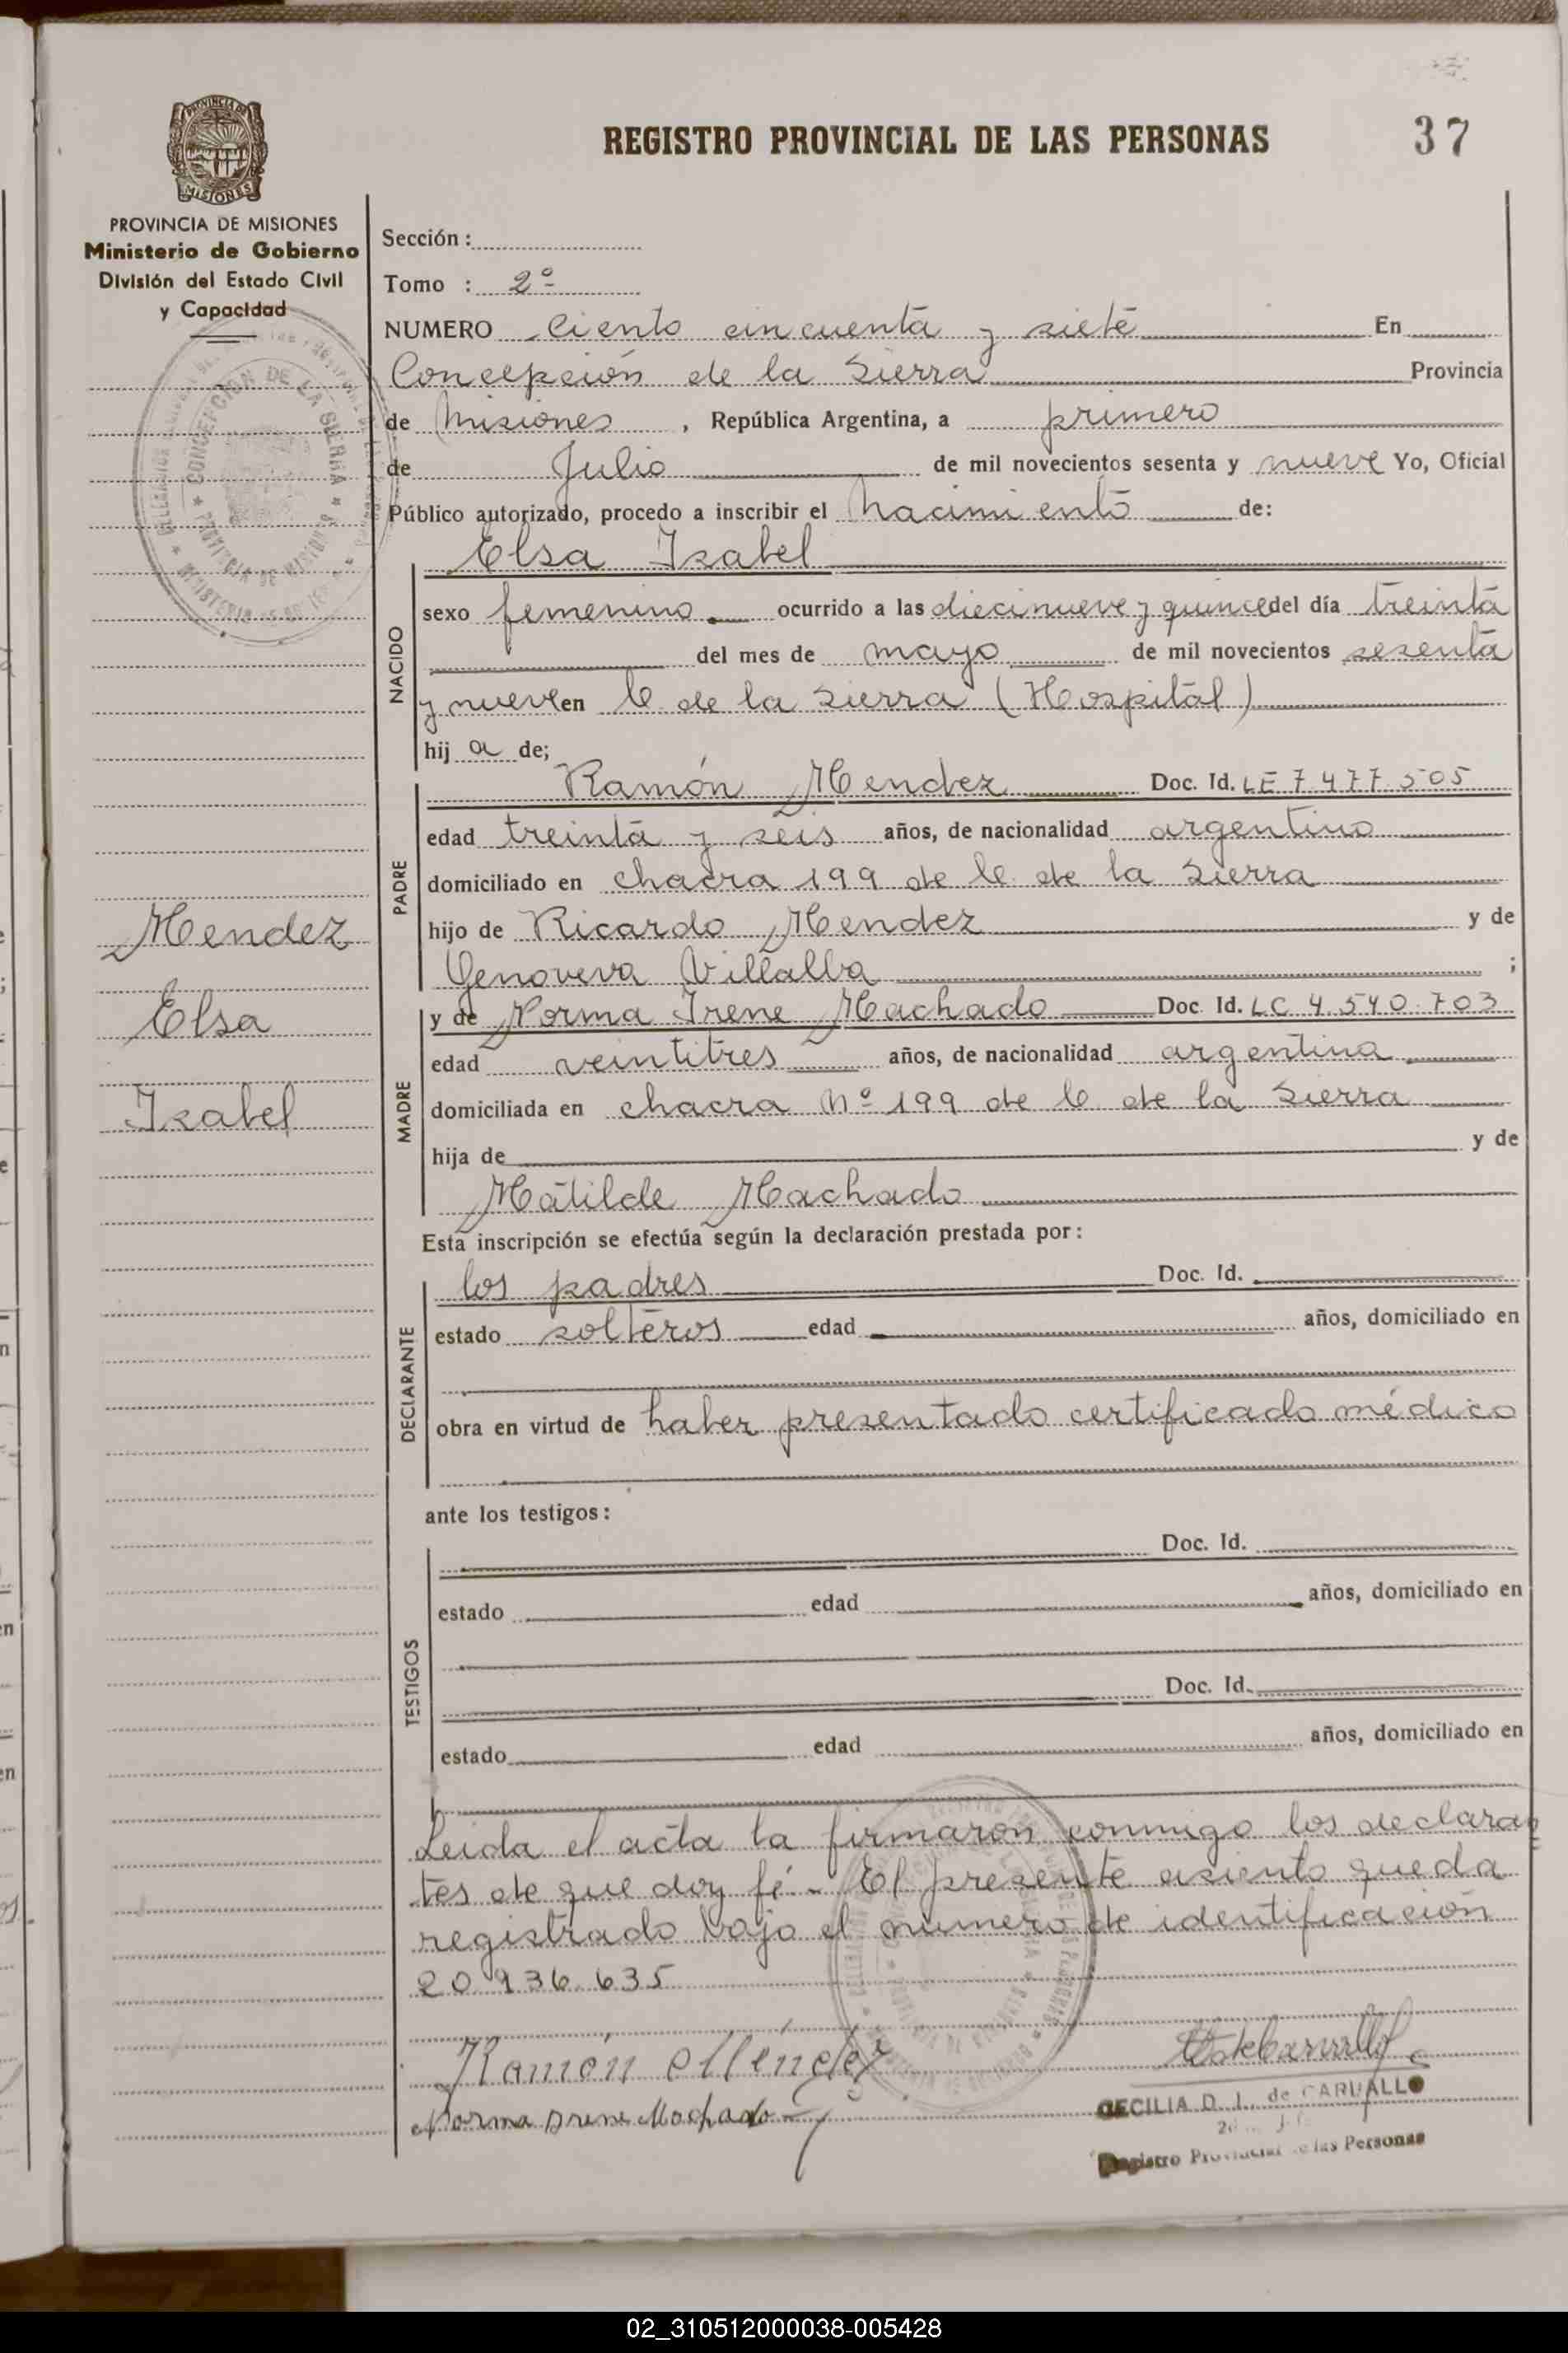 REGISTRO PROVINCIAL DE LAS PERSONAS 37
PROVINCIA DE MISIONES
Ministerio de Gobierno
División del Estado Civil
y Capacidad
CONCEPCION DE LA SIERRA
Mendez
Elsa
Isabel
Sección :
Tomo : 2º
NUMERO Ciento cincuenta y siete En
Concepción de la Sierra Provincia
de Misiones , República Argentina, a primero
de Julio de mil novecientos sesenta y nueve Yo, Oficial
Público autorizado, procedo a inscribir el Nacimiento de:
Elsa Isabel
NACIDO
sexo femenino ocurrido a las diecinueve y quince del día treinta
del mes de mayo de mil novecientos sesenta
y nueve en C. de la Sierra (Hospital)
hij a de;
PADRE
Ramón Mendez Doc. Id. LE 7.477.505
edad treinta y seis años, de nacionalidad argentino
domiciliado en chacra 199 de C. de la Sierra
hijo de Ricardo Mendez y de
Genoveva Villalba ;
MADRE
y de Norma Irene Machado Doc. Id. LC 4.540.703
edad veintitres años, de nacionalidad argentina
domiciliada en chacra Nº 199 de C. de la Sierra
hija de y de
Matilde Machado
Esta inscripción se efectúa según la declaración prestada por :
DECLARANTE
los padres Doc. Id.
estado solteros edad años, domiciliado en
obra en virtud de haber presentado certificado médico
ante los testigos :
TESTIGOS
Doc. Id.
estado edad años, domiciliado en
Doc. Id.
estado edad años, domiciliado en
Leida el acta la firmaron conmigo los declaran
tes de que doy fé. - El presente asiento queda
registrado bajo el numero de identificación
20.936.635
Ramón Méndez
Norma Irene Machado
CECILIA D. I. de CARVALLO
Registro Provincial de las Personas
02_310512000038-005428